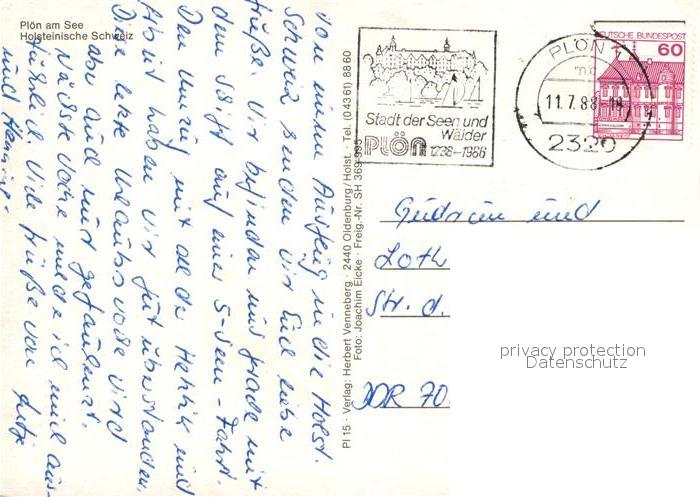 Plön am See
Holsteinische Schweiz
Von einem Ausflug in die Holst.
Schweiz senden wir Euch liebe
Grüße. Wir befinden uns grade mit
dem Schiff auf einer 5-Seen-Fahrt.
Den Umzug mit all der Hektik und
Arbeit haben wir gut überstanden.
Diese letzte Urlaubswoche wird
also auch nur gefaulenzt.
Nächste Woche melde ich mich aus-
führlich. Viele Grüße von Antje
und Henning.
Pl 15 · Verlag: Herbert Venneberg · 2440 Oldenburg/Holst. · Tel. (04361) 8860
Foto: Joachim Eicke · Freig.-Nr. SH 369-995
Stadt der Seen und
Wälder
PLÖN 1236-1986
PLÖN 1
11.7.88-18
2320
DEUTSCHE BUNDESPOST
60
Gudrun und
Loth
Str. d.
DDR 70
privacy protection
Datenschutz